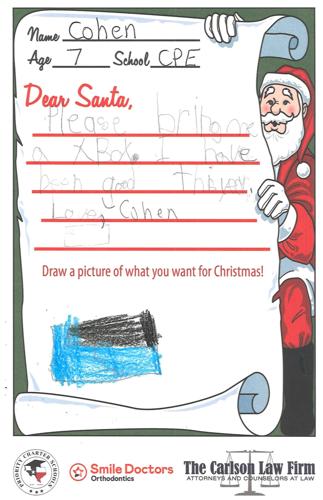 Name Cohen
Age 7 School CPE
Dear Santa,
Please bring me
a XBox. I have
been good this year.
Love, Cohen
Draw a picture of what you want for Christmas!
PRIORITY CHARTER SCHOOLS
Smile Doctors
Orthodontics
The Carlson Law Firm
ATTORNEYS AND COUNSELORS AT LAW